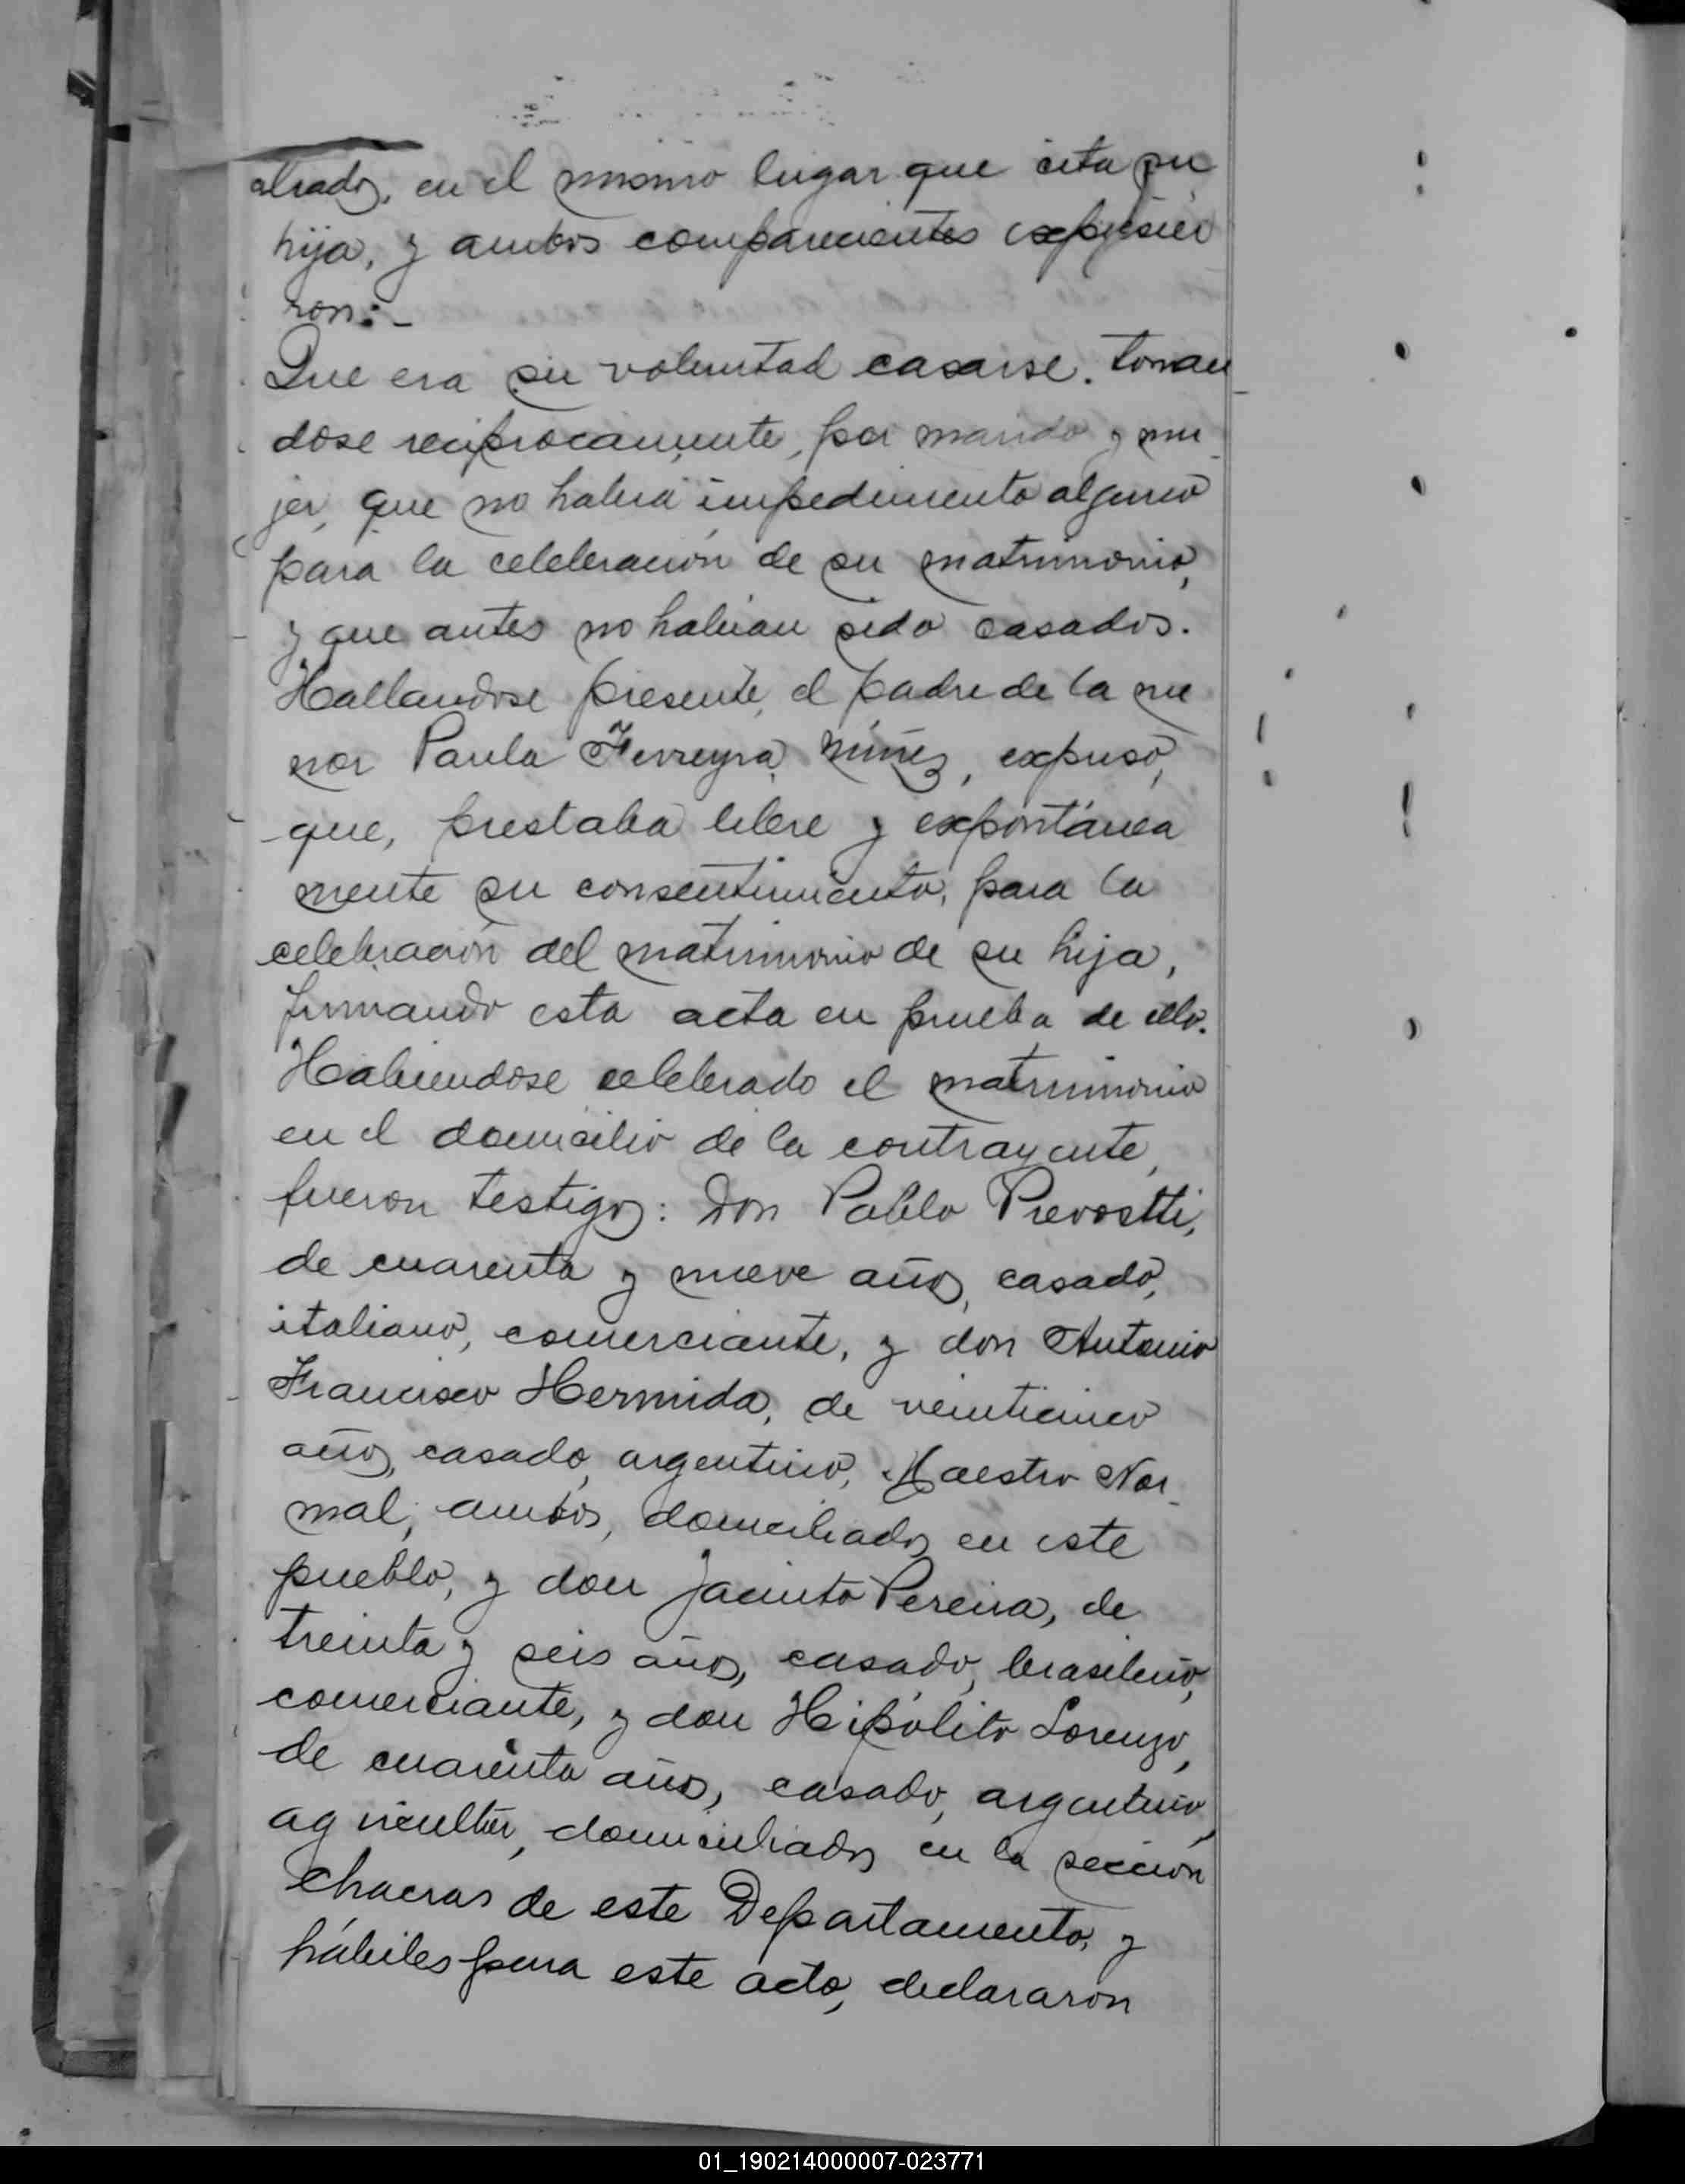 en el mismo lugar que cita su
hija, y ambos comparecientes expusie
ron:-
Que era su voluntad casarse. toman
dose reciprocamente, por marido y mu
jer, que no habia impedimento alguno
para la celebración de su matrimonio,
y que antes no habian sido casados.
Hallandose presente, el padre de la me
nor Paula Ferreyra Núñez, expuso,
que, prestaba libre y expontánea
mente su consentimiento, para la
celebración del matrimonio de su hija,
firmando esta acta en prueba de ello.
Habiendose celebrado el matrimonio
en el domicilio de la contrayente,
fueron testigos: Don Pablo Prevostti,
de cuarenta y nueve años, casado,
italiano, comerciante, y don Antonio
Francisco Hermida, de veinticinco
años, casado, argentino, Maestro Nor-
mal, ambos, domiciliados en este
pueblo, y don Jacinto Pereira, de
treinta y seis años, casado, brasileño,
comerciante, y don Hipólito Lorenzo,
de cuarenta años, casado, argentino,
agricultor, domiciliados en la sección
chacras de este Departamento, y
hábiles para este acto, declararon
01_190214000007-023771